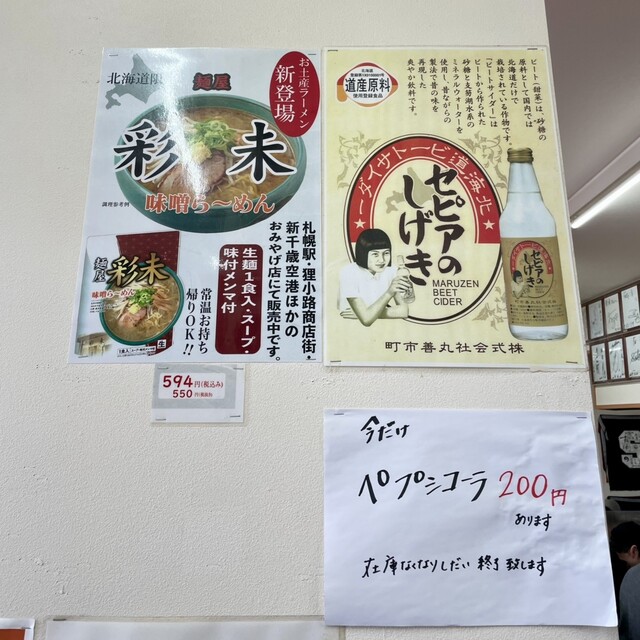 北海道限
麺屋
お土産ラーメン
新登場
彩未
味噌ら〜めん
調理参考例
麺屋
彩未
味噌ら〜めん
生
札幌駅・狸小路商店街・
新千歳空港ほかの
おみやげ店にて販売中です。
生麺1食入・スープ・
味付メンマ付
常温お持ち
帰りOK!!
594円(税込み)
550円(税抜き)
北海道
道産原料
使用登録食品
ビート(甜菜)は、砂糖の
原料として国内では
北海道だけで
栽培されている作物です。
「ビートサイダー」は
ビートから作られた
砂糖と支笏湖水系の
ミネラルウォーターを
使用し、昔ながらの
製法で昔の味を
再現した
爽やか飲料です。
ーダイサトービ・道海北
セピアの
しげき
MARUZEN
BEET
CIDER
セピアの
しげき
町市善丸社会式株
今だけ
ペプシコーラ 200円
あります
在庫なくなりしだい 終了致します